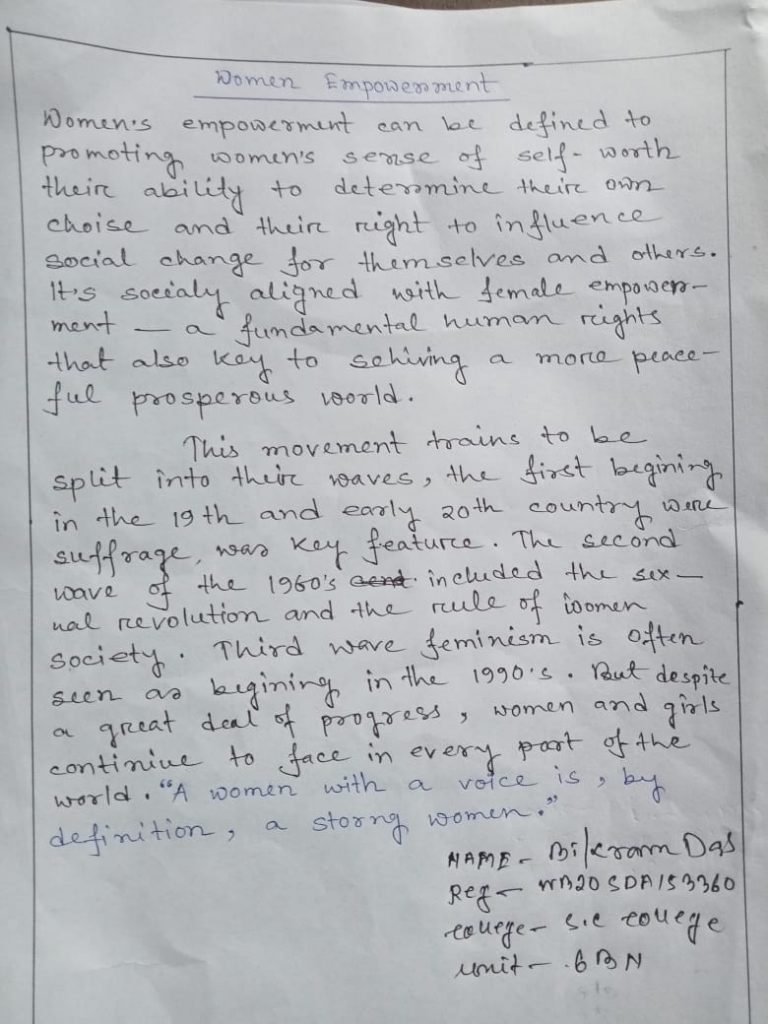 Women Empowerment
Women's empowerment can be defined to
promoting women's sense of self-worth
their ability to determine their own
choise and their right to influence
social change for themselves and others.
It's socialy aligned with female empower-
ment — a fundamental human rights
that also key to sehiving a more peace-
ful prosperous world.
This movement trains to be
split into their waves, the first begining
in the 19th and early 20th country were
suffrage, was key feature. The second
wave of the 1960's included the sex-
ual revolution and the rule of women
society. Third wave feminism is often
seen as begining in the 1990's. But despite
a great deal of progress, women and girls
continiue to face in every part of the
world. "A women with a voice is, by
definition, a storng women."
NAME - Bikram Das
Reg - WB20SDA153360
college - S.C college
unit - 6 BN